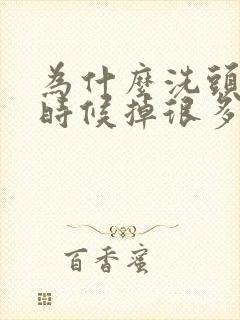 為什麼洗頭
時候掉很多
百香蜜